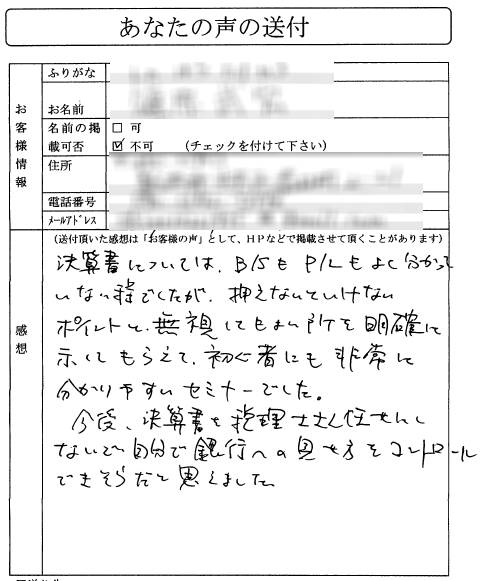 あなたの声の送付
お客様情報
ふりがな
お名前
名前の掲載可否
□ 可
☑ 不可 (チェックを付けて下さい)
住所
電話番号
メールアドレス
(送付頂いた感想は「お客様の声」として、HPなどで掲載させて頂くことがあります)
感想
決算書については、B/SもP/Lもよく分かって
いない程でしたが、押えないといけない
ポイントと、無視してもよい所を明確に
示してもらえて、初心者にも非常に
分かりやすいセミナーでした。
今後、決算書を税理士さん任せにし
ないで自分で銀行への見せ方をコントロール
できそうだと思えました